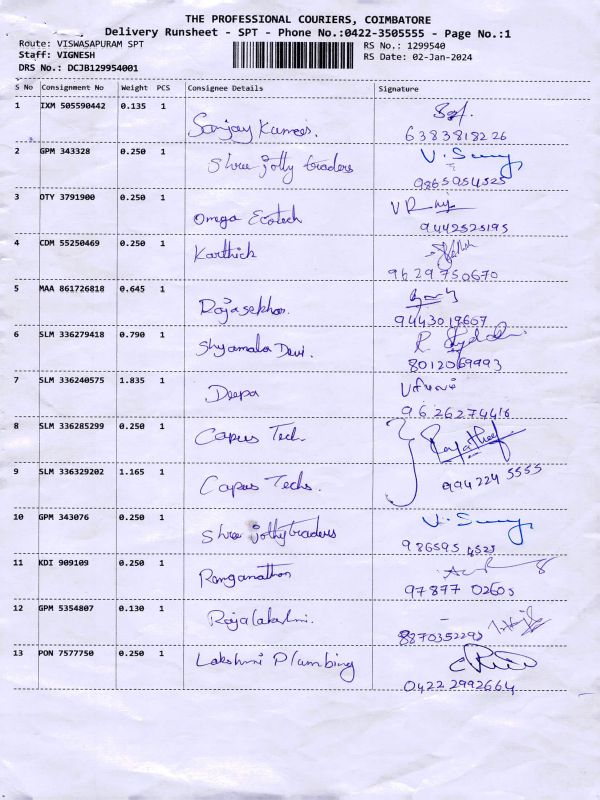 THE PROFESSIONAL COURIERS, COIMBATORE
Delivery Runsheet - SPT - Phone No.:0422-3505555 - Page No.:1
Route: VISWASAPURAM SPT
Staff: VIGNESH
DRS No.: DCJB129954001
RS No.: 1299540
RS Date: 02-Jan-2024
S No Consignment No Weight PCS Consignee Details Signature
1 IXM 505590442 0.135 1
Sanjay Kumar. 6383818226
2 GPM 343328 0.250 1
Shree jothy traders V. Sunny
9865954525
3 OTY 3791900 0.250 1
Omega Ecotech 9442525195
4 CDM 55250469 0.250 1
Karthick
9629750670
5 MAA 861726818 0.645 1
Rajasekhar. 9443019607
6 SLM 336279418 0.790 1
Shyamala Devi. 8012069993
7 SLM 336240575 1.835 1
Deepa
9626274418
8 SLM 336285299 0.250 1
Capus Tech
9 SLM 336329202 1.165 1
Capus Techs. 994 224 5555
10 GPM 343076 0.250 1
Shree jothy traders V. Sunny
986595 4525
11 KDI 909109 0.250 1
Ranganathan 97877 02603
12 GPM 5354807 0.130 1
Rajalakshmi. 8870352293
13 PON 7577750 0.250 1
Lakshmi Plumbing
0422 2992664